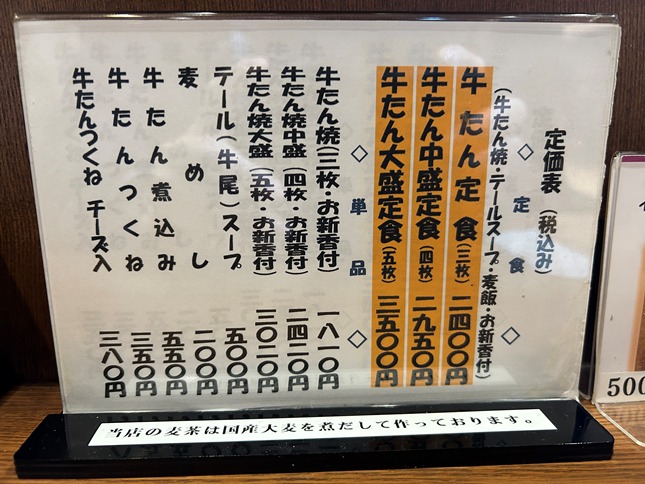 定価表(税込み)
◇定食◇
(牛たん焼・テールスープ・麦飯・お新香付)
牛たん定食(三枚)二四〇〇円
牛たん中盛定食(四枚)二九五〇円
牛たん大盛定食(五枚)三五〇〇円
◇単品◇
牛たん焼(三枚・お新香付)一八一〇円
牛たん焼中盛(四枚・お新香付)二四二〇円
牛たん焼大盛(五枚・お新香付)三〇二〇円
テール(牛尾)スープ五〇〇円
麦めし二〇〇円
牛たん煮込み五五〇円
牛たんつくね三五〇円
牛たんつくねチーズ入三八〇円
当店の麦茶は国産大麦を煮だして作っております。
500